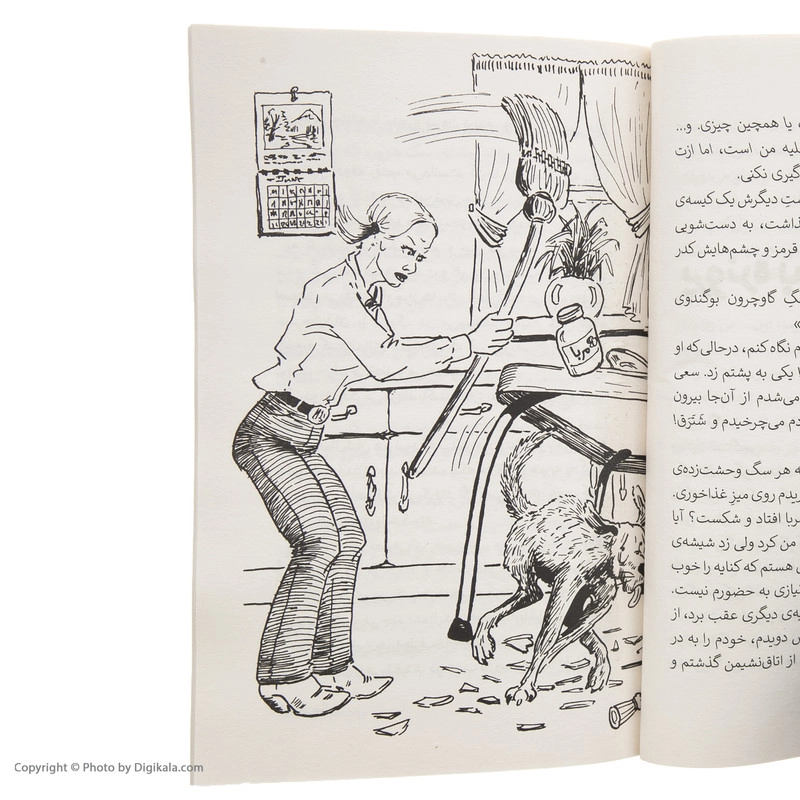 June
مربا
، یا همچین چیزی. و...
لیه من است، اما ازت
گیری نکنی.
ستِ دیگرش یک کیسه‌ی
ذاشت، به دست‌شویی
قرمز و چشم‌هایش کدر
گِ گاوچرون بوگندوی
»
م نگاه کنم، درحالی‌که او
یکی به پشتم زد. سعی
می‌شدم از آن‌جا بیرون
دم می‌چرخیدم و شَتَرَق!
ه هر سگ وحشت‌زده‌ی
ریدم روی میز غذاخوری.
ربا افتاد و شکست؟ آیا
من کرد ولی زد شیشه‌ی
ی هستم که کنایه را خوب
نیازی به حضورم نیست.
یه‌ی دیگری عقب برد، از
س دویدم، خودم را به در
از اتاق‌نشیمن گذشتم و
Copyright © Photo by Digikala.com